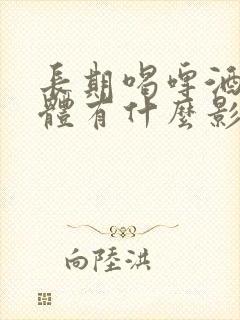 長期喝啤酒
體有什麼影
向陸洪